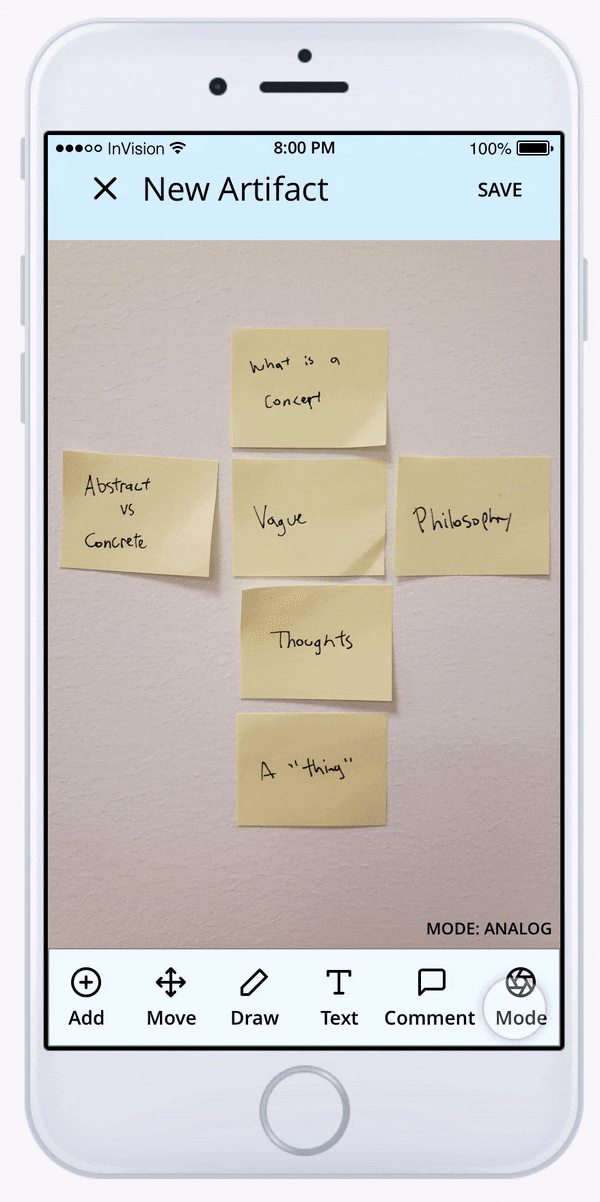 InVision
8:00 PM
100%
New Artifact
SAVE
What is a
Concept
Abstract
vs
Concrete
Vague
Philosophy
Thoughts
A "thing"
MODE: ANALOG
Add
Move
Draw
Text
Comment
Mode